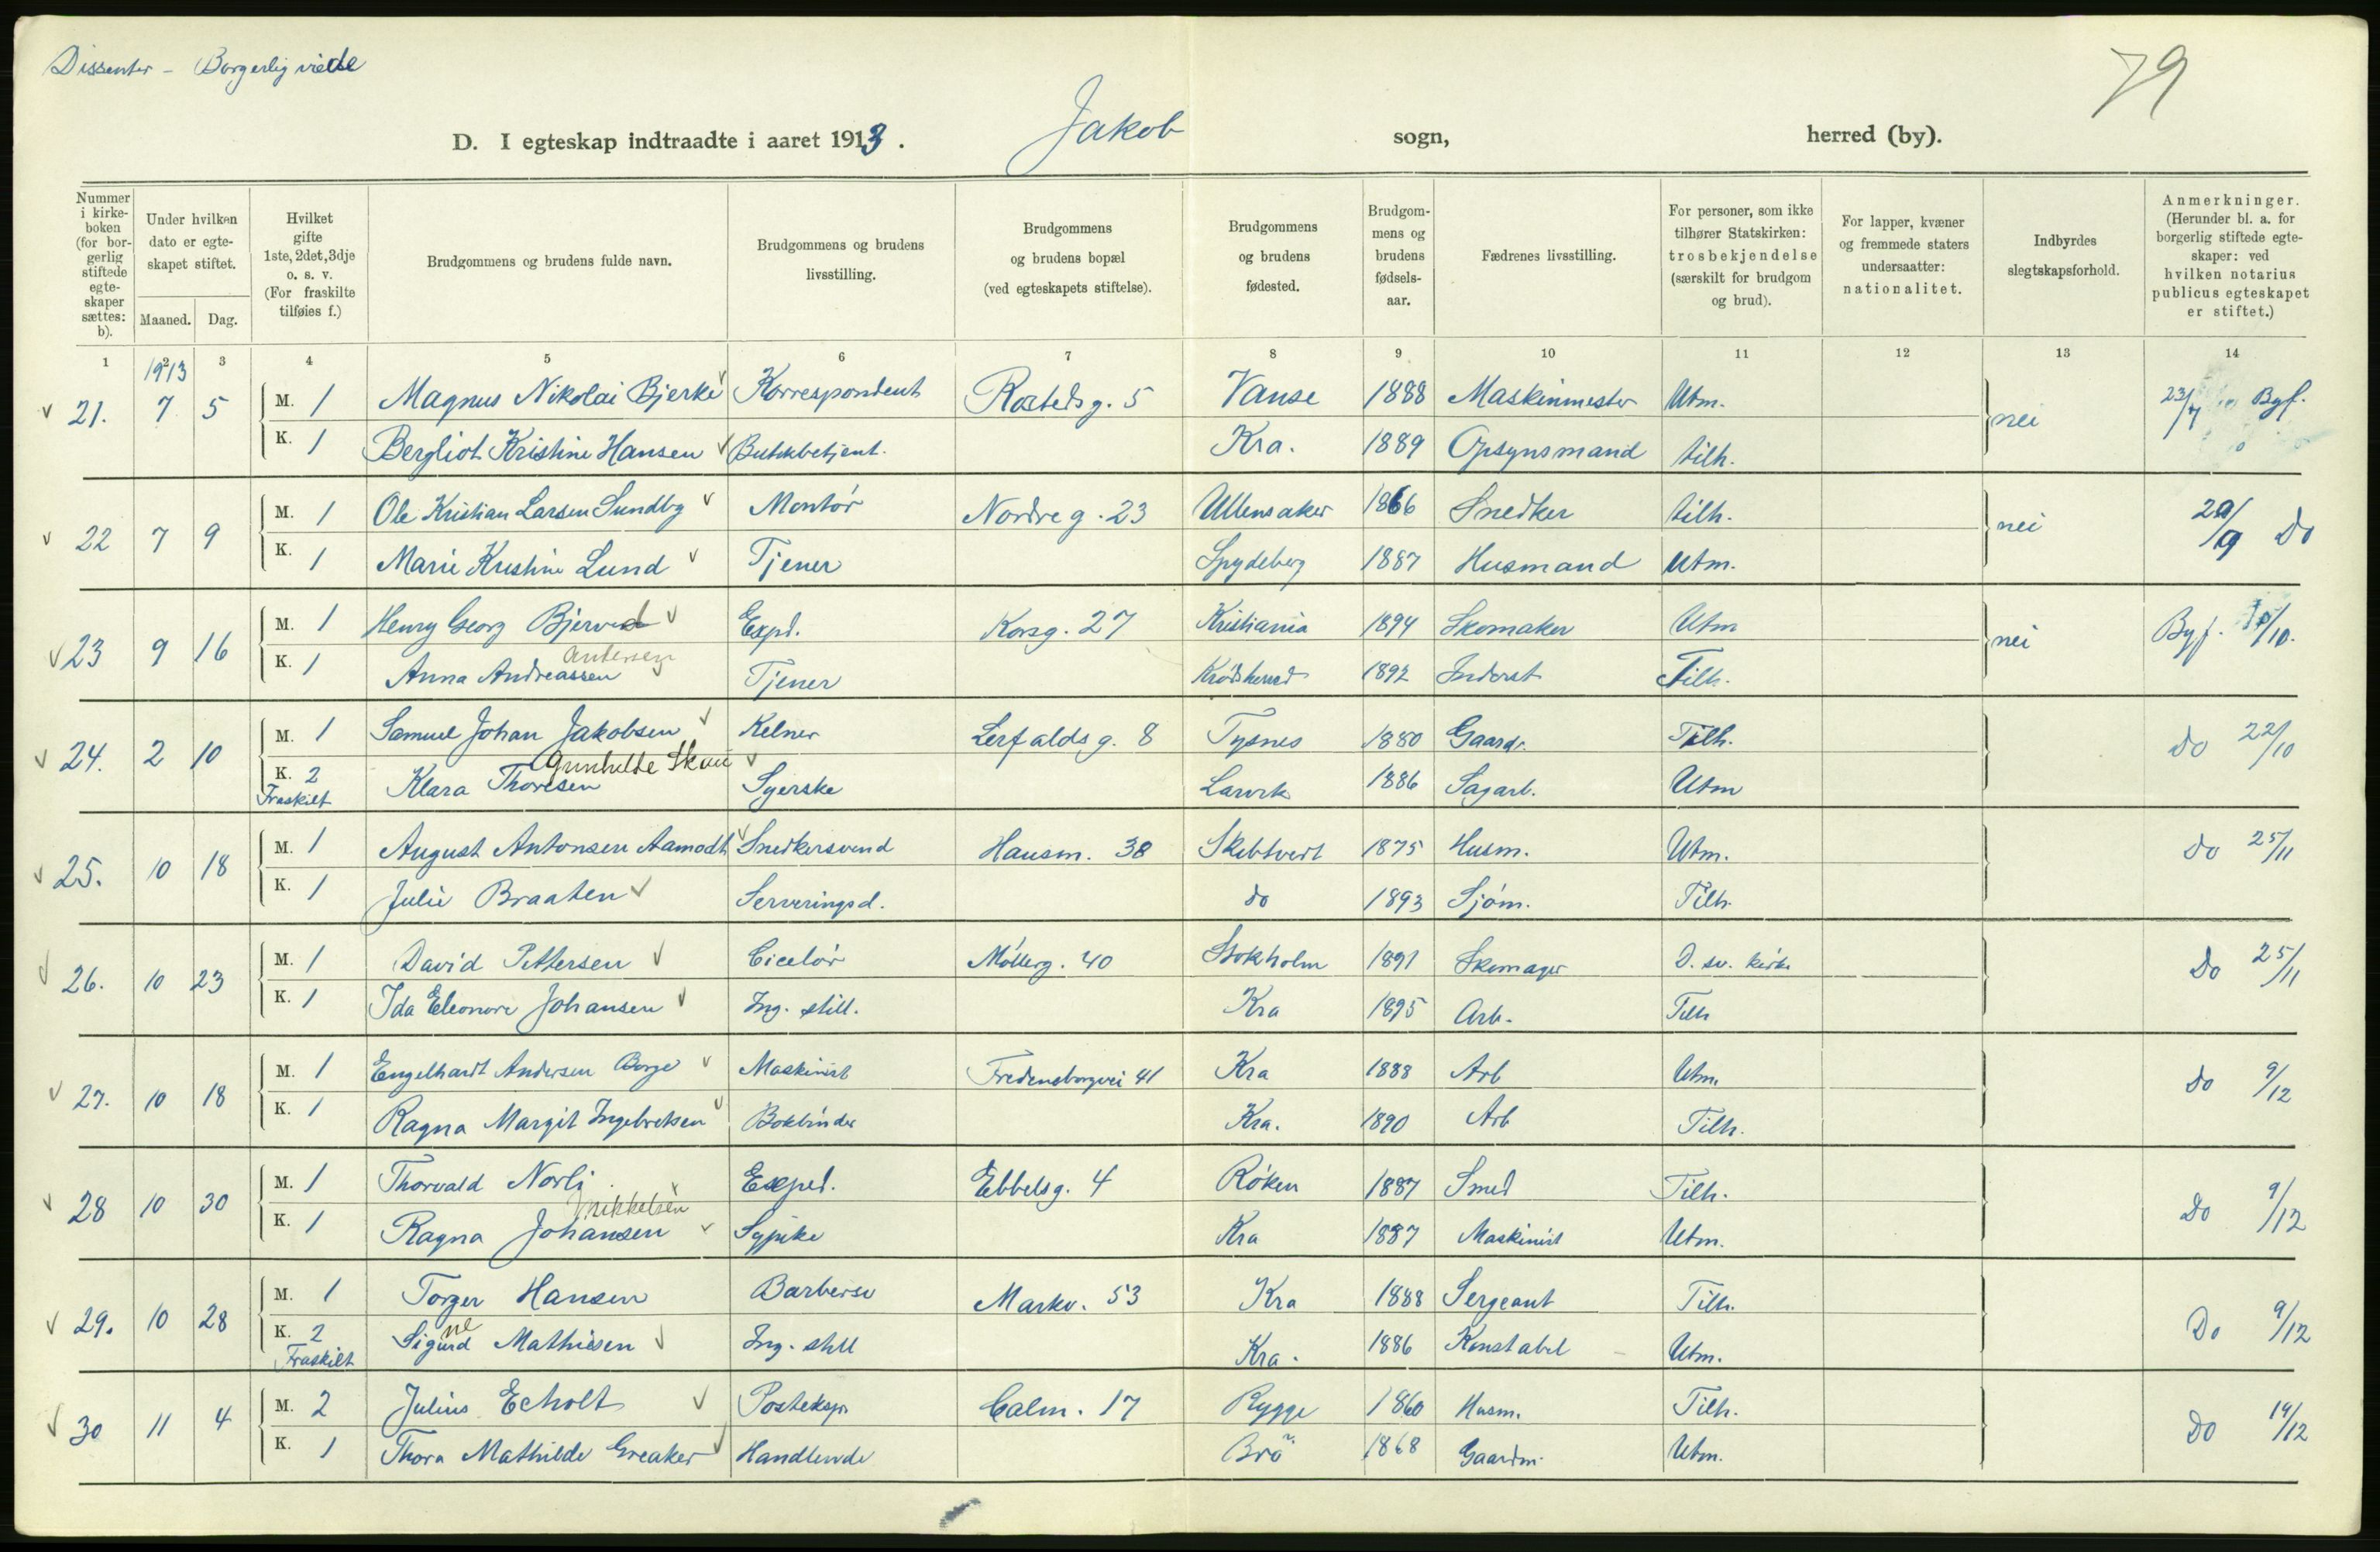 Dissenter - Borgerlig viede
79
D. I egteskap indtraadte i aaret 1913. Jakob sogn, herred (by).
Nummer i kirkeboken (for borgerlig stiftede egteskaper sættes: b).
Under hvilken dato er egteskapet stiftet.
Maaned. Dag.
Hvilket gifte 1ste, 2det, 3dje o. s. v. (For fraskilte tilføies f.)
Brudgommens og brudens fulde navn.
Brudgommens og brudens livsstilling.
Brudgommens og brudens bopæl (ved egteskapets stiftelse).
Brudgommens og brudens fødested.
Brudgommens og brudens fødselsaar.
Fædrenes livsstilling.
For personer, som ikke tilhører Statskirken: trosbekjendelse (særskilt for brudgom og brud).
For lapper, kvæner og fremmede staters undersaatter: nationalitet.
Indbyrdes slegtskapsforhold.
Anmerkninger. (Herunder bl. a. for borgerlig stiftede egteskaper: ved hvilken notarius publicus egteskapet er stiftet.)
1 2 3 4 5 6 7 8 9 10 11 12 13 14
1913
21. 7 5 M. 1 Magnus Nikolai Bjerke Korrespondent Rosteds g. 5 Vanse 1888 Maskinmester Utm. nei 23/7 Byf.
K. 1 Bergliot Kristine Hansen Butikbetjent. Kra. 1889 Opsynsmand tilh.
22 7 9 M. 1 Ole Kristian Larsen Sundby Montør Nordre g. 23 Ullensaker 1866 Snedker tilh. nei 20/9 Do
K. 1 Marie Kristine Lund Tjener Spydeberg 1887 Husmand Utm.
23 9 16 M. 1 Henry Georg Expd. Korsg. 27 Kristiania 1894 Skomaker Utm nei Byf. /10.
Andersen
K. 1 Anna Andreassen Tjener Krødsherred 1892 Inderst Tilh.
24. 2 10 M. 1 Samuel Johan Jakobsen Kelner Lerfaldsg. 8 Tysnes 1880 Gaardr. Tilh. Do 22/10
Gunhilde Skau
K. 2 Klara Thoresen Syerske Larvik 1886 Sagarb. Utm
Fraskilt
25. 10 18 M. 1 August Antonsen Aamodt Snedkersvend Hausm. 38 Skibtvedt 1875 Husm. Utm. do 25/11
K. 1 Julie Braaten Serveringsd. do 1893 Sjøm. Tilh.
26. 10 23 M. 1 David Pettersen Ciselør Møllerg. 40 Stokholm 1891 Skomager D. sv. kirke Do 25/11
K. 1 Ida Eleonore Johansen Ing. still. Kra 1895 Arb. Tilh
27. 10 18 M. 1 Engelhardt Andersen Borge Maskinist Fredensborgvei 41 Kra 1888 Arb Utm. do 9/12
K. 1 Ragna Margit Ingebretsen Bokbinder Kra. 1890 Arb Tilh.
28 10 30 M. 1 Thorvald Norli Exped. Ebbelsg. 4 Røken 1887 Smed Tilh. Do 9/12
Mikkelsen
K. 1 Ragna Johansen Sypike Kra 1887 Maskinist Utm.
29. 10 28 M. 1 Torger Hansen Barbersv Markv. 53 Kra 1888 Sergeant Tilh. Do 9/12
ne
K. 2 Sigurd Mathisen Ing. still Kra. 1886 Konstabel Utm.
Fraskilt
30 11 4 M. 2 Julius Echolt Posteksp. Calm. 17 Rygge 1860 Husm. Tilh. Do 14/12
K. 1 Thora Mathilde Greaker Handlende 1868 Gaardm. Utm.